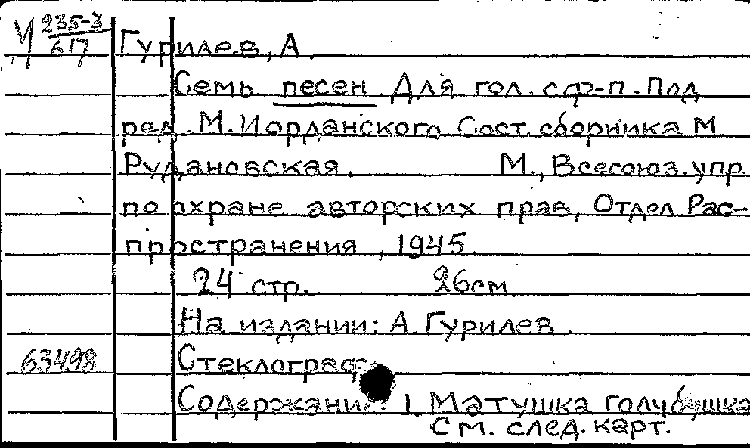 235-3
617
Гурилев, А.
Семь песен. Для гол. с ф-п. Под
ред. М. Иорданского Сост. сборника М.
Рудановская. М., Всесоюз. упр.
по охране авторских прав, Отдел Рас-
пространения, 1945.
24 стр. 26см
На издании: А. Гурилев.
63498 Стеклограф.
Содержание: 1. Матушка голубушка
См. след. карт.